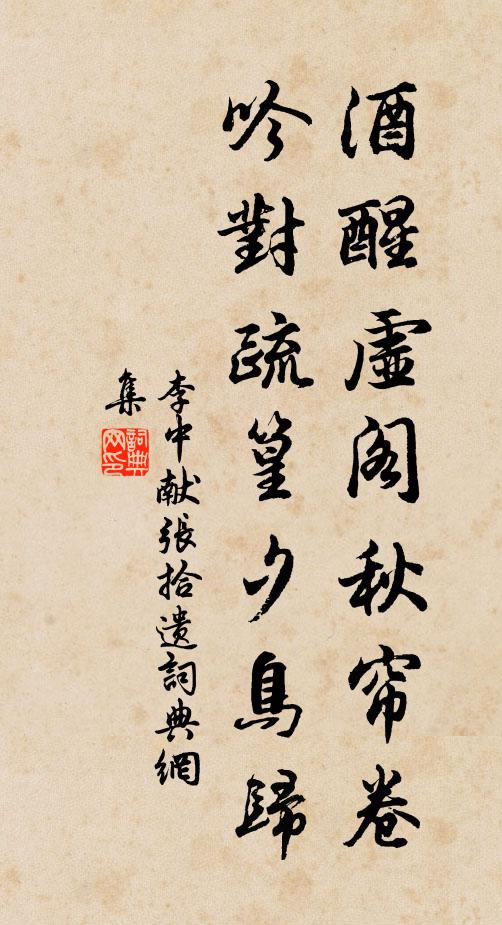 酒醒虛阁秋帘卷
吟對疏篁夕鳥歸
李中献張拾遺詞典網
集
詞典網印